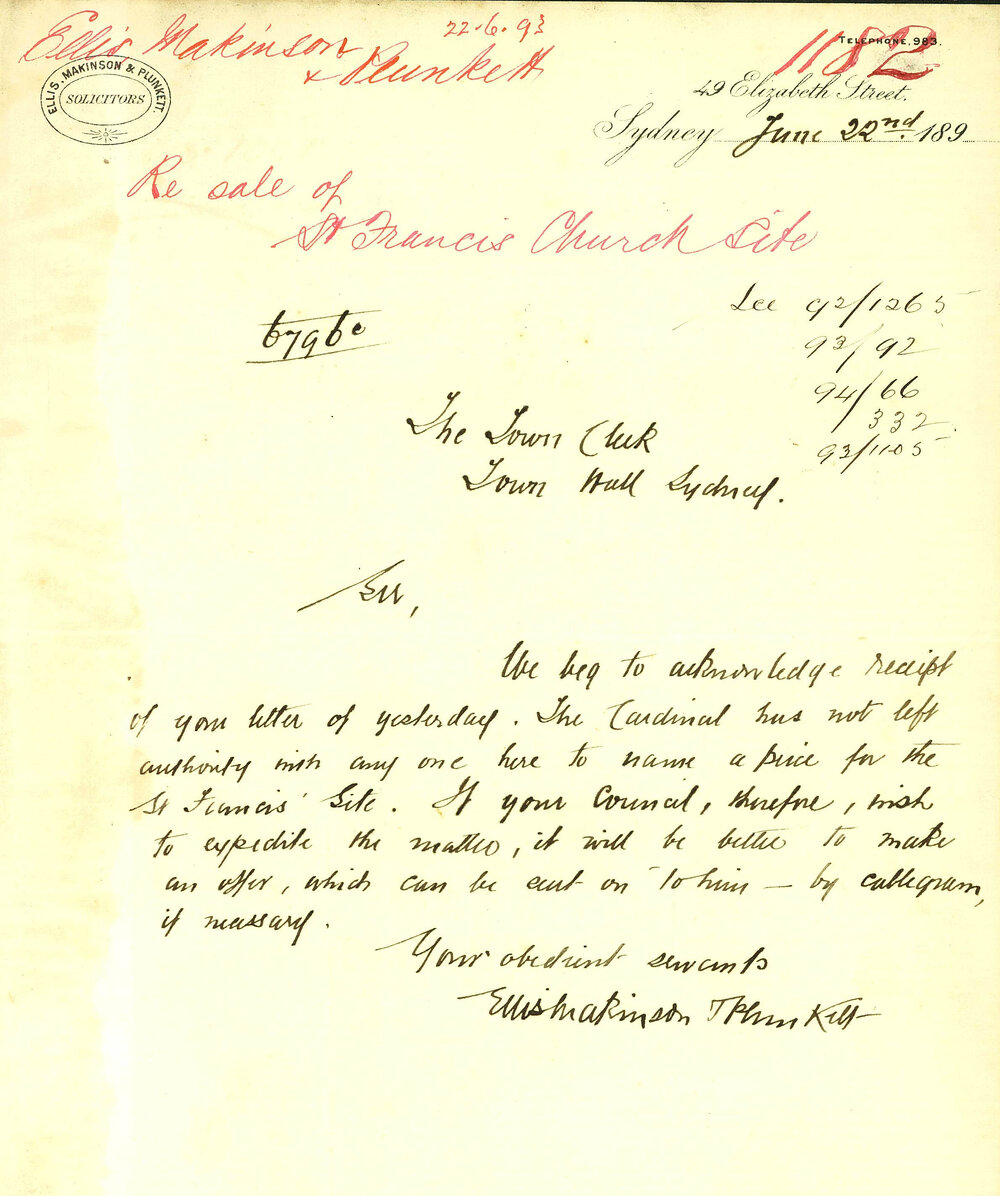 Ellis Makinson 22-6.93
& Plunkett
1182
TELEPHONE. 983.
ELLIS. MAKINSON & PLUNKETT.
SOLICITORS
49 Elizabeth Street.
Sydney June 22nd. 189
Re sale of
St Francis Church Site
See 92/1265
93/92
94/66
/332
93/1105
The Town Clerk
Town Hall Sydney.
Sir,
We beg to acknowledge receipt
of your letter of yesterday. The Cardinal has not left
authority with any one here to name a price for the
St Francis' Site. If your Council, therefore, wish
to expedite the matter, it will be better to make
an offer, which can be sent on to him — by cablegram,
if necessary.
Your obedient servants
Ellis Makinson & Plunkett